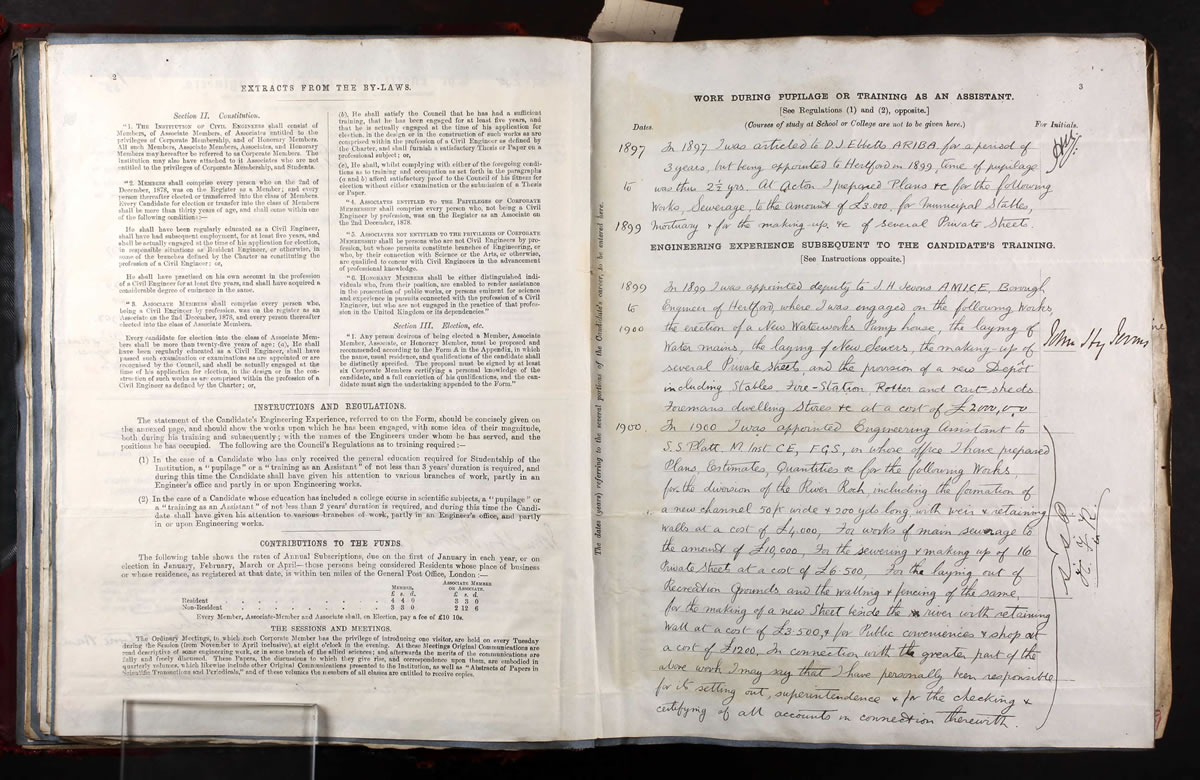 2
EXTRACTS FROM THE BY-LAWS.
Section II. Constitution.
"1. THE INSTITUTION OF CIVIL ENGINEERS shall consist of
Members, of Associate Members, of Associates entitled to the
privileges of Corporate Membership, and of Honorary Members.
All such Members, Associate Members, Associates, and Honorary
Members may hereafter be referred to as Corporate Members. The
Institution may also have attached to it Associates who are not
entitled to the privileges of Corporate Membership, and Students.
"2. MEMBERS shall comprise every person who on the 2nd of
December, 1878, was on the Register as a Member; and every
person thereafter elected or transferred into the class of Members.
Every Candidate for election or transfer into the class of Members
shall be more than thirty years of age, and shall come within one
of the following conditions:—
He shall have been regularly educated as a Civil Engineer,
shall have had subsequent employment, for at least five years, and
shall be actually engaged at the time of his application for election,
in responsible situations as Resident Engineer, or otherwise, in
some of the branches defined by the Charter as constituting the
profession of a Civil Engineer; or,
He shall have practised on his own account in the profession
of a Civil Engineer for at least five years, and shall have acquired a
considerable degree of eminence in the same.
"3. ASSOCIATE MEMBERS shall comprise every person who,
being a Civil Engineer by profession, was on the register as an
Associate on the 2nd December, 1878, and every person thereafter
elected into the class of Associate Members.
Every candidate for election into the class of Associate Mem-
bers shall be more than twenty-five years of age; (a), He shall
have been regularly educated as a Civil Engineer, shall have
passed such examination or examinations as are appointed or are
recognised by the Council, and shall be actually engaged at the
time of his application for election, in the design or in the con-
struction of such works as are comprised within the profession of a
Civil Engineer as defined by the Charter; or,
(b), He shall satisfy the Council that he has had a sufficient
training, that he has been engaged for at least five years, and
that he is actually engaged at the time of his application for
election, in the design or in the construction of such works as are
comprised within the profession of a Civil Engineer as defined by
the Charter, and shall furnish a satisfactory Thesis or Paper on a
professional subject; or,
(c), He shall, whilst complying with either of the foregoing condi-
tions as to training and occupation as set forth in the paragraphs
(a and b) afford satisfactory proof to the Council of his fitness for
election without either examination or the submission of a Thesis
or Paper.
"4. ASSOCIATES ENTITLED TO THE PRIVILEGES OF CORPORATE
MEMBERSHIP shall comprise every person who, not being a Civil
Engineer by profession, was on the Register as an Associate on
the 2nd December, 1878.
"5. ASSOCIATES NOT ENTITLED TO THE PRIVILEGES OF CORPORATE
MEMBERSHIP shall be persons who are not Civil Engineers by pro-
fession, but whose pursuits constitute branches of Engineering, or
who, by their connection with Science or the Arts, or otherwise,
are qualified to concur with Civil Engineers in the advancement
of professional knowledge.
"6. HONORARY MEMBERS shall be either distinguished indi-
viduals who, from their position, are enabled to render assistance
in the prosecution of public works, or persons eminent for science
and experience in pursuits connected with the profession of a Civil
Engineer, but who are not engaged in the practice of that profes-
sion in the United Kingdom or its dependencies."
Section III. Election, etc.
"1. Any person desirous of being elected a Member, Associate
Member, Associate, or Honorary Member, must be proposed and
recommended according to the Form A in the Appendix, in which
the name, usual residence, and qualifications of the candidate shall
be distinctly specified. The proposal must be signed by at least
six Corporate Members certifying a personal knowledge of the
candidate, and a full conviction of his qualifications, and the can-
didate must sign the undertaking appended to the Form."
INSTRUCTIONS AND REGULATIONS.
The statement of the Candidate's Engineering Experience, referred to on the Form, should be concisely given on
the annexed page, and should show the works upon which he has been engaged, with some idea of their magnitude,
both during his training and subsequently; with the names of the Engineers under whom he has served, and the
positions he has occupied. The following are the Council's Regulations as to training required:—
(1) In the case of a Candidate who has only received the general education required for Studentship of the
Institution, a "pupilage" or a "training as an Assistant" of not less than 3 years' duration is required, and
during this time the Candidate shall have given his attention to various branches of work, partly in an
Engineer's office and partly in or upon Engineering works.
(2) In the case of a Candidate whose education has included a college course in scientific subjects, a "pupilage" or
a "training as an Assistant" of not less than 2 years' duration is required, and during this time the Candi-
date shall have given his attention to various branches of work, partly in an Engineer's office, and partly
in or upon Engineering works.
CONTRIBUTIONS TO THE FUNDS.
The following table shows the rates of Annual Subscriptions, due on the first of January in each year, or on
election in January, February, March or April—those persons being considered Residents whose place of business
or whose residence, as registered at that date, is within ten miles of the General Post Office, London:—
MEMBER. ASSOCIATE MEMBER OR ASSOCIATE.
£ s. d. £ s. d.
Resident 4 4 0 3 3 0
Non-Resident 3 3 0 2 12 6
Every Member, Associate-Member and Associate shall, on Election, pay a fee of £10 10s.
THE SESSIONS AND MEETINGS.
The Ordinary Meetings, to which each Corporate Member has the privilege of introducing one visitor, are held on every Tuesday
during the Session (from November to April inclusive), at eight o'clock in the evening. At these Meetings Original Communications are
read descriptive of some engineering work, or in some branch of the allied sciences; and afterwards the merits of the communications are
fully and freely discussed. These Papers, the discussions to which they give rise, and correspondence upon them, are embodied in
quarterly volumes, which likewise include other Original Communications presented to the Institution, as well as "Abstracts of Papers in
Scientific Transactions and Periodicals," and of these volumes the members of all classes are entitled to receive copies.
The dates (years) referring to the several portions of the Candidate's career, to be entered here.
3
WORK DURING PUPILAGE OR TRAINING AS AN ASSISTANT.
[See Regulations (1) and (2), opposite.]
Dates. (Courses of study at School or College are not to be given here.) For Initials.
1897 In 1897 I was articled to D.J. Ebbetts A.R.I.B.A for a period of
3 years, but being appointed to Hertford in 1899, time of pupilage
to was thus 2½ yrs. At Acton I prepared Plans &c for the following
Works, Sewerage, to the Amount of £3,000, for Municipal Stables,
1899 Mortuary & for the making-up &c of several Private Streets.
ENGINEERING EXPERIENCE SUBSEQUENT TO THE CANDIDATE'S TRAINING.
[See Instructions opposite.]
1899 In 1899 I was appointed deputy to J. H. Jevons A.M.I.C.E, Borough
to Engineer of Hertford, where I was engaged on the following Works,
1900 the erection of a New Waterworks Pump house, the laying of
Water mains, the laying of New Sewers, the making-up of
several Private Streets, and the provision of a new Depôt
including Stables. Fire-Station, Rotter and Cart-sheds
Foremans dwelling Stores &c at a cost of £2000,0,0
John Hy Jevons
1900. In 1900 I was appointed Engineering Assistant to
S.S. Platt. M. Inst. C.E, F.G.S, in whose office I have prepared
Plans, Estimates, Quantities &c for the following Works,
for the diversion of the River Roch, including the formation of
a new channel 50ft wide & 200 yds long with weir & retaining
walls at a cost of £4,000, For works of main sewerage to
the amount of £10,000, For the sewering & making up of 16
Private Streets at a cost of £6,500, For the laying out of
Recreation Grounds and the walling & fencing of the same,
for the making of a new Street beside the river with retaining
Wall at a cost of £3,500, & for Public conveniences & shop at
a cost of £1200, In connection with the greater part of the
above work I may say that I have personally been responsible
for its setting out, superintendence & for the checking &
certifying of all accounts in connection therewith.